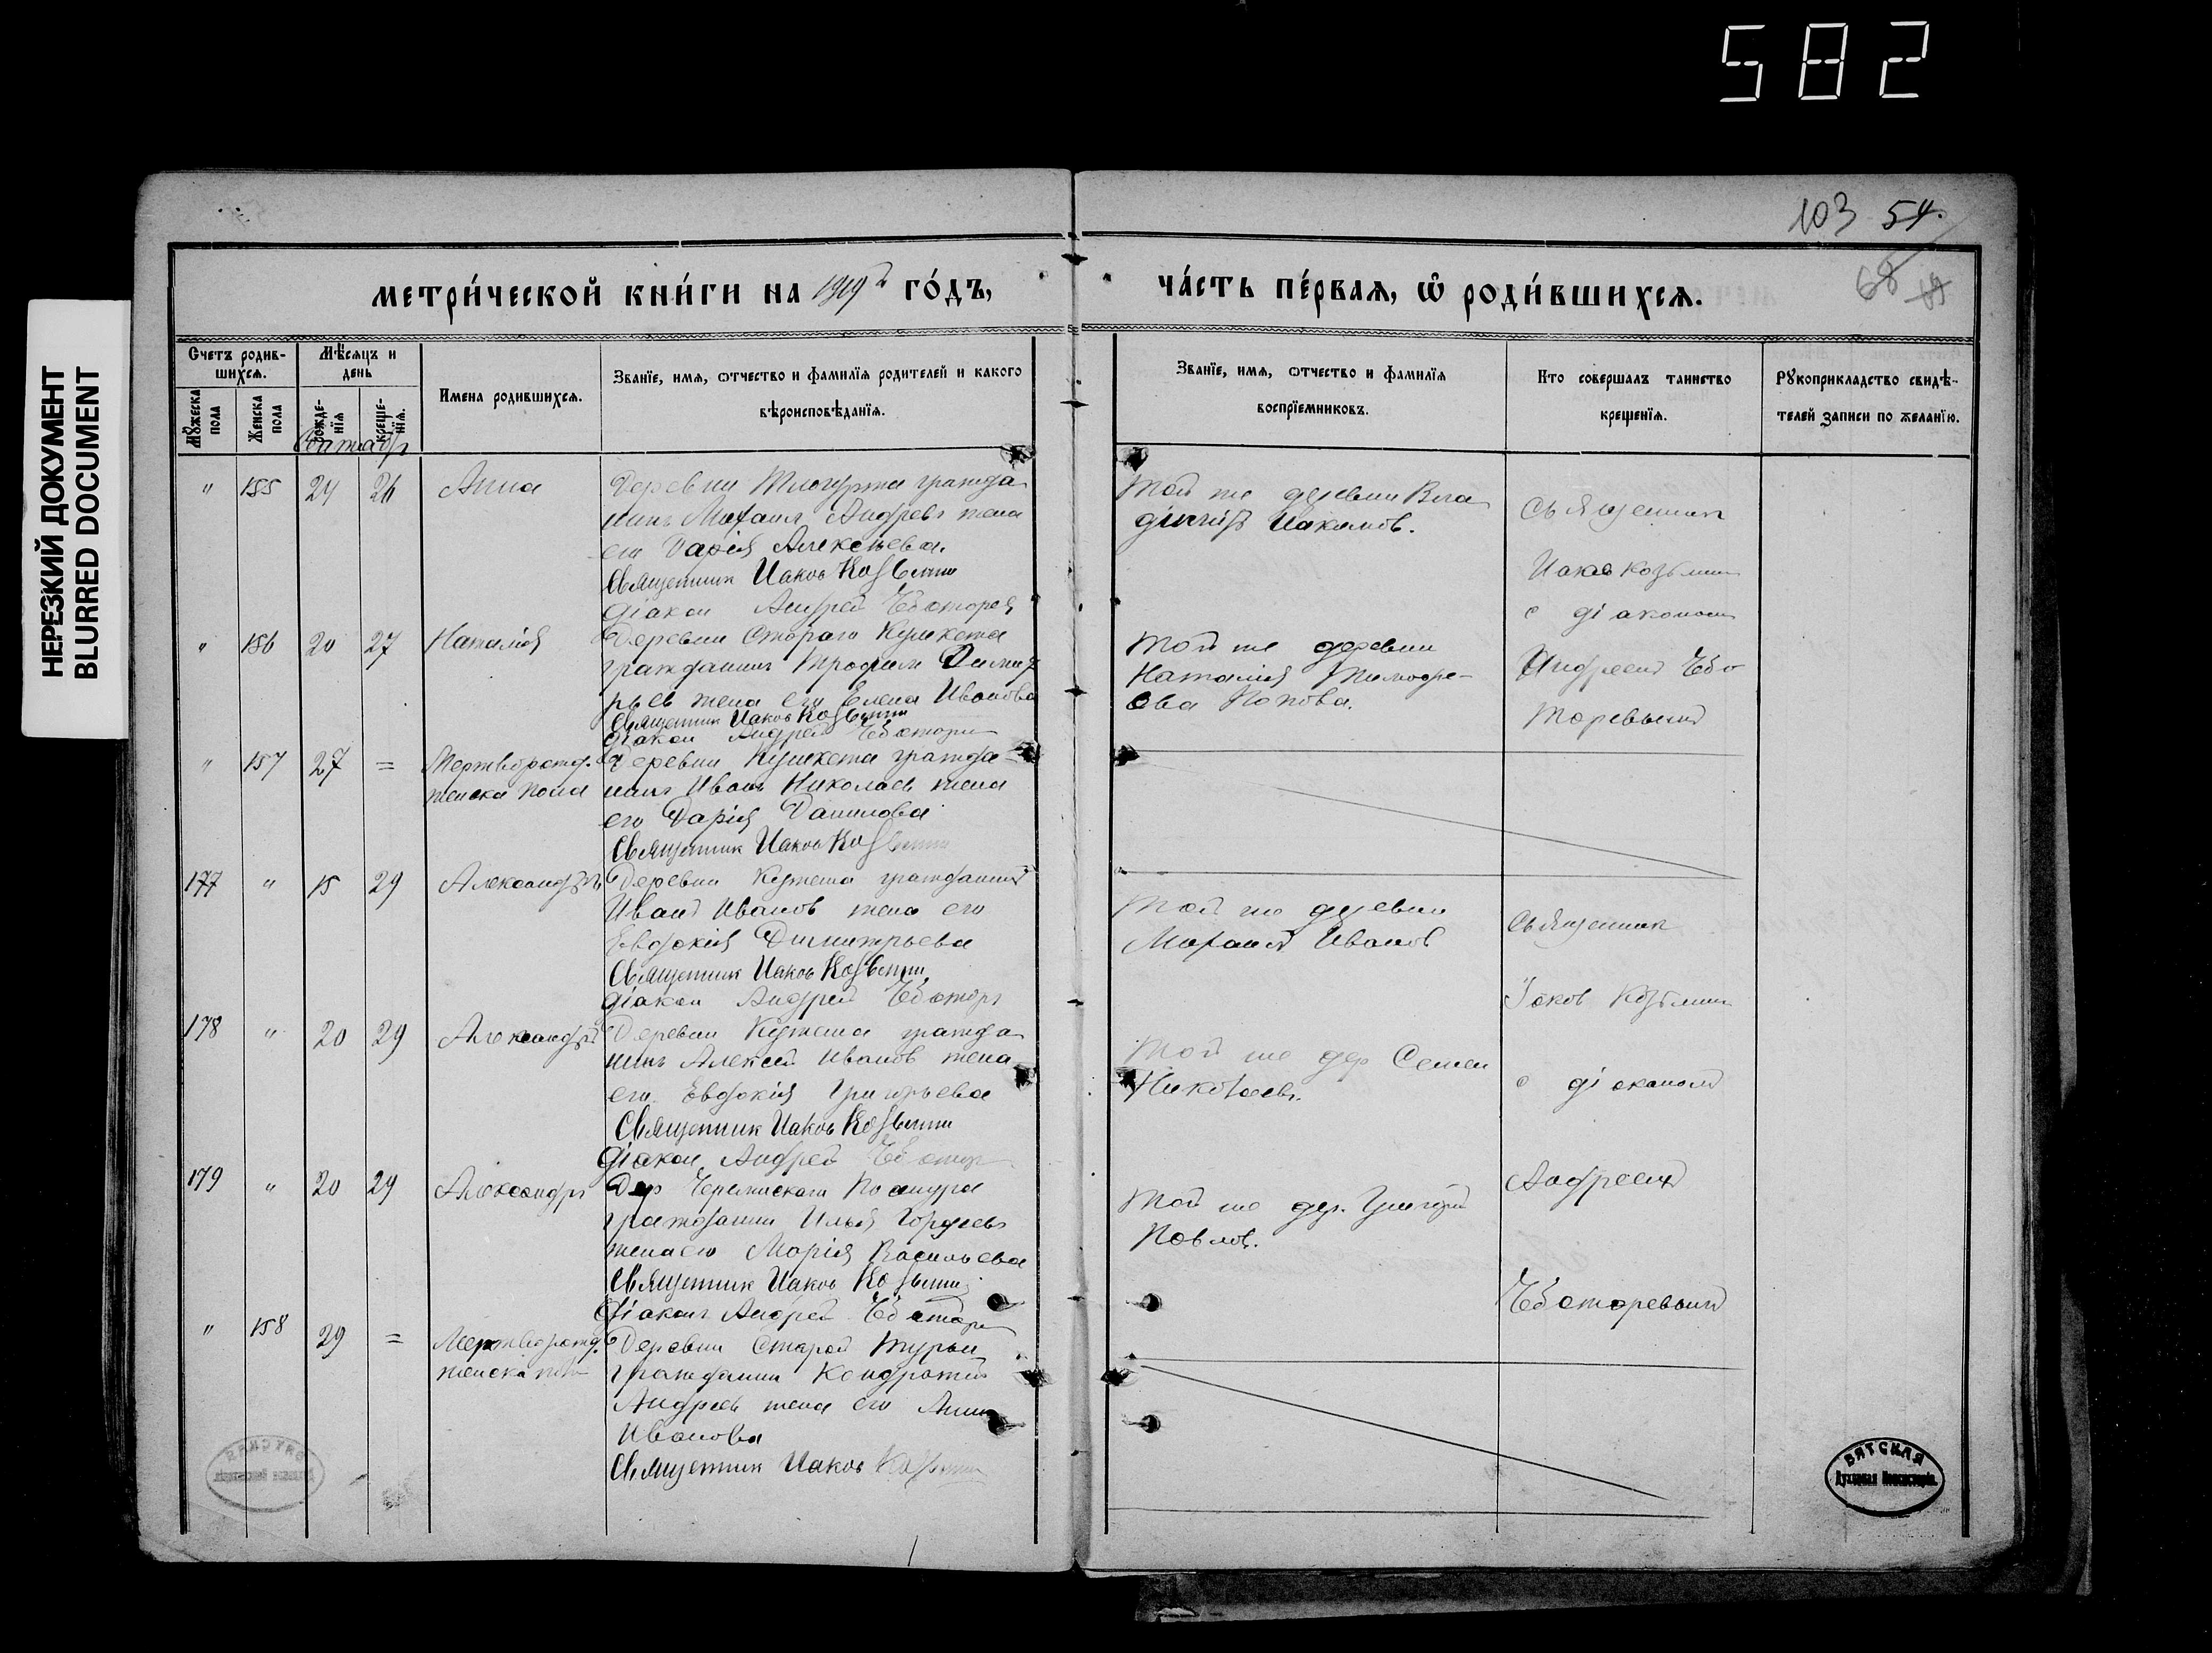 582
НЕРЕЗКИЙ ДОКУМЕНТ
BLURRED DOCUMENT
103 54.
68
метри́ческой кни́ги на 1919 го́дъ,
ча́сть пе́рвая, ѡ роди́вшихсѧ.
Счетъ родив-
шихсѧ.
Мѣсѧцъ и
день
Мꙋжеска
пола
Женска
пола
рожде-
нїѧ
креще-
нїѧ.
Имена родившихсѧ.
Званїе, имѧ, ѿтчество и фамилїѧ родителей и какого
вѣроисповѣданїѧ.
Званїе, имѧ, ѿтчество и фамилїѧ
воспрїемниковъ.
Кто совершалъ таинство
крещенїѧ.
Рꙋкоприкладство свидѣ-
телей записи по желанїю.
Сентябр
" 155 24 26 Анна
Деревни гражда
нинъ Михаил Андреев жена
его Дарія Алексеева.
Священник Иаков Козьмин
діакон Андрей Чеботарев
Той же деревни Вла
димиръ Иакимов.
Священник
Иаков Козьмин
с діаконом
" 156 20 27 Наталія
Деревни Стараго Кушкета
гражданин Трофим Димит
рьев жена его Елена Иванова
Священник Иаков Козьмин
діакон Андрей Чеботарев
Той же деревни
Наталія Тимофе-
ева Попова.
Андреем Чебо
таревым
" 157 27 = Мертворожд.
женска пола
Деревни Кушкета гражда-
нинъ Иван Николаев жена
его Дарія Данилова
Священник Иаков Козьмин
177 " 15 29 Александръ
Деревни гражданин
Иван Иванов жена его
Евдокія Димитрьева
Священник Иаков Козьмин
діакон Андрей Чеботарев
Той же деревни
Михаил Иванов
Священник
Іаков Козьмин
178 " 20 29 Александръ
Деревни гражда
нинъ Алексей Иванов жена
его Евдокія Григорьева
Священник Иаков Козьмин
діакон Андрей Чеботар
Той же дер Семен
Николаев.
с діаконом
179 " 20 29 Александръ
Дер Черемискаго
гражданин Илья Гордеев
жена его Марія Васильева
Священник Иаков Козьмин
діакон Андрей Чеботарев
Той же дер. Григорій
Павлов.
Андреем
Чеботаревым
" 158 29 = Мертворожд.
женска пола
Деревни Старой Турьи
гражданин Кондратій
Андреев жена его Анна
Иванова
Священник Иаков Козьмин
ВЯТСКАЯ
Духовная Консисторія.